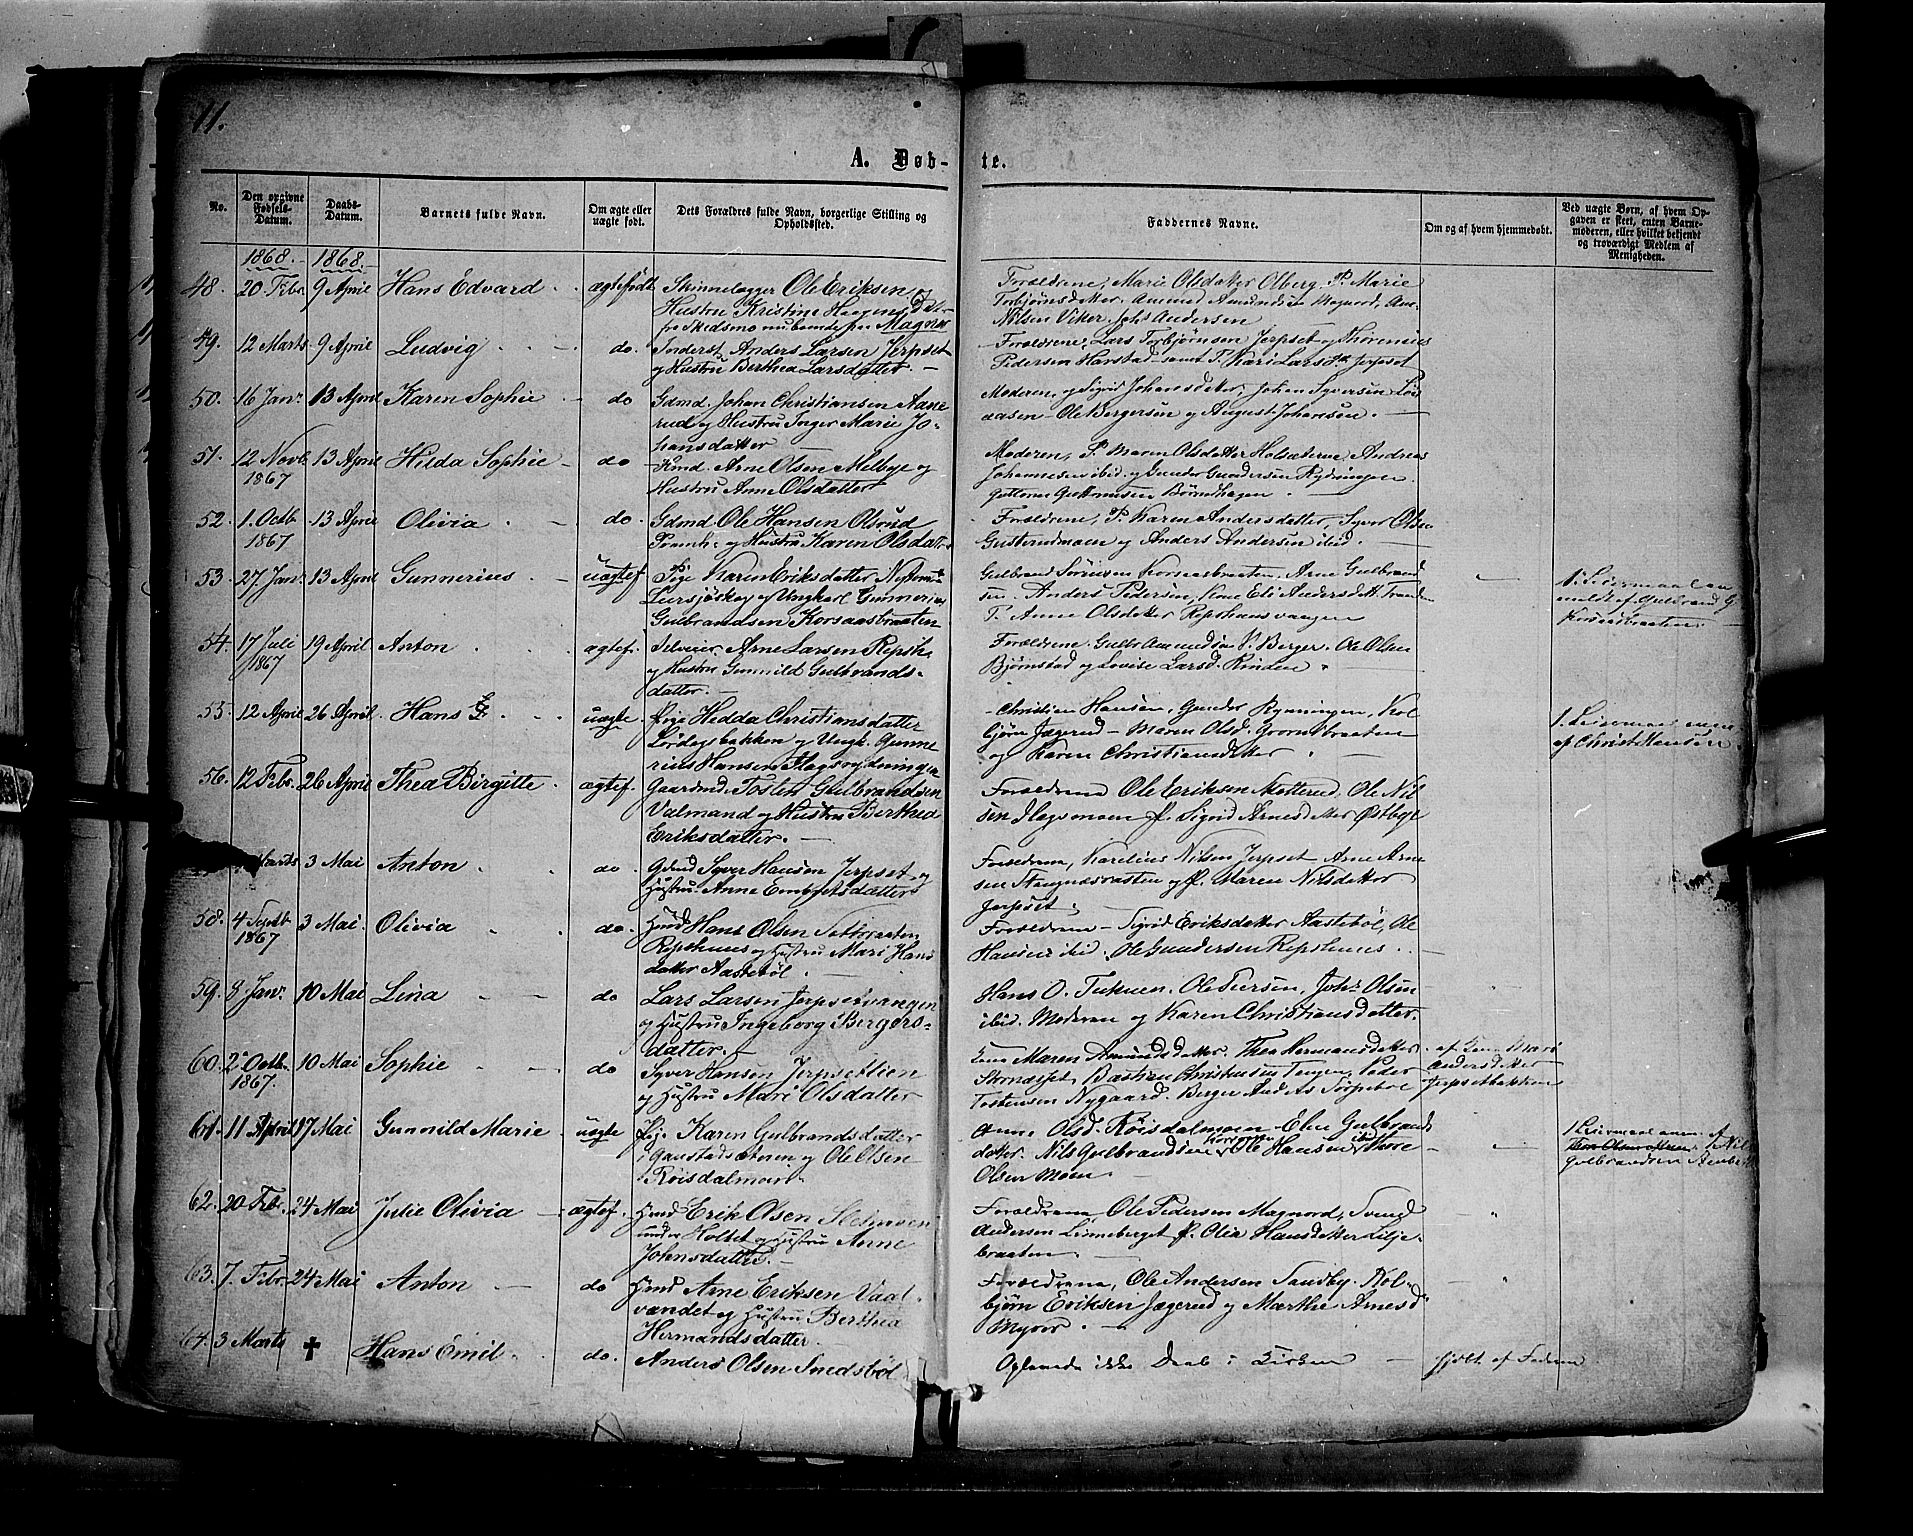 11.
A. Døb-
te.
No.
Den opgivne Fødsels-Datum.
Daabs-Datum.
Barnets fulde Navn.
Om ægte eller uægte født.
Dets Forældres fulde Navn, borgerlige Stilling og Opholdssted.
Faddernes Navne.
Om og af hvem hjemmedøbt.
Ved uægte Børn, af hvem Opgaven er skeet, enten Barnemoderen, eller hvilket bekjendt og troværdigt Medlem af Menigheden.
1868. 1868.
48. 20 Febr 9 April Hans Edvard ægtefødt Skinnelægger Ole Eriksen og
Hustru Kristine
fra Skedsmo Magnor
Forældrene, Marie Olsdatter Olberg, P. Marie
Torbjørnsdatter, Amund Amundsen Magnord,
Nilsen Viker, Joh. Andersen
49. 12 Marts 9 April Ludvig do. Inderst Anders Larsen Jerpset
og Hustru Berthea Larsdatter.
Forældrene, Lars Torbjørnsen Jerpset og Thorenius
Pedersen Harstad samt P. Kari Larsd. Jerpset
50. 16 Janr 13 April Karen Sophie do Gdmd. Johan Christiansen Aane
rud og Hustru Inger Marie Jo-
hansdatter
Moderen, og Sigrid Johansdatter, Johan Syversen
aasen Ole Bergersen og August Johansen.
51. 12 Novb. 1867 13 April Hilda Sophie do Arne Olsen Melbye og
Hustru Anne Olsdatter
Moderen, P. Maren Olsdatter Holsæterne, Andreas
Johannesen ibid. og Gunder Gundersen Rydningen
Guttorm Guttormsen Børndhagen.
52. 1. Octb. 1867 13 April Olivia do. Gdmd. Ole Hansen Olsrud
og Hustru Karen Olsdatt.
Forældrene, P. Karen Andersdatter, Syver Olsen
Gusterudmoen og Anders Andersen ibid.
53. 27 Janr 13 April Gunnerius uægtef. Pige Karen Eriksdatter
og Ungkarl Gunnerius
Gulbrandsen Korsaasbraaten
Gulbrand Sørensen Korsaasbraaten, Arne Gulbrand
sen, Anders Pedersen, Kone Eli Andersdatt.
P. Anne Olsdatter Repshusvangen
1. Leiermaal an
meldt af Gulbrand G.
Korsaasbraaten.
54. 17 Juli 1867 19 April Anton ægtef. Selveier Arne Larsen Repsh.
og Hustru Gunnild Gulbrands-
datter.
Forældrene, Gulbr. Amundsen V. Berger, Ole Olsen
Bjørnstad og Lovise Larsd. Rinden
55. 12 April 26 April Hans G. uægte Pige Hedda Christiansdatter
Lørdagsbakken og Ungk. Gunne
rius Hansen Flagsrydningen
Christian Hansen, Gunder Rymingen, Kol
bjørn Jægerud Maren Olsd.
og Karen Christiansdatter
1. Leiermaal
af Christ. Hansen.
56. 12 Febr. 26 April Thea Birgitte ægtef. Gaardmd. Tosten Gulbrandsen
Valmand og Hustru Berthea
Eriksdatter.
Forældrene Ole Eriksen Motterud, Ole Nil
sen Flagsmoen P. Sigrid Arnesdatter Østbye
Marts 3 Mai Anton do. Gdmd Syver Hansen Jerpset og
Hustru Anne Embretsdatter
Forældrene, Karelius Nilsen Jerpset Arne Arne
sen Stangnæsbraaten og P. Maren Nilsdatter
Jerpset.
58. 4 Septb. 1867 3 Mai. Olivia do. Hmd Hans Olsen
Repshuus og Hustru Mari Hans
datter Aastebøl.
Forældrene Sigrid Eriksdatter Aastebøl, Ole
Hansen ibid, Ole Gundersen Repshuus.
59. 8 Janr 10 Mai Lina do Lars Larsen Jerpsetvangen
og Hustru Ingeborg Bergers-
datter.
Hans O. Ole Persen, Joh. Olsen
ibid. Moderen og Karen Christiansdatter.
60. 2 Octb. 1867. 10 Mai Sophie do Syver Hansen Jerpsetlien
og Hustru Mari Olsdatter
Kone Maren Amundsdatter. Thea Hermansdatter
Strandsset, Bastian Christiansen Tangen, Peder
Tostensen Nygaard. Berger And. As Torpebøl
af Gm. Mari
Andersdatter
Jerpsetbakken
61. 11 April 17 Mai Gunnild Marie uægte Pige Karen Gulbrandsdatter
i Gaustadsæteren og Ole Olsen
Røisdalmoen
Anne Olsd. Røisdalmoen Eline Gulbrand
datter. Nils Gulbrandsen Ole Hansen Thore
Olsen Moen
1 Leiermaal anm. af
Nils
Gulbrandsen
62. 20 Feb. 24 Mai Julie Olivia ægtef. Hmd Erik Olsen
under Holtet og Hustru Anne
Johnsdatter.
Forældrene Ole Pedersen Magnord, Svend
Andersen Linneberget P. Olea Hansdatter Lilje-
braaten
63. 7. Febr. 24 Mai Anton do Hmd Arne Eriksen Vaal-
vandet og Hustru Berthea
Hermandsdatter.
Forældrene, Ole Andersen Sandby. Kol-
bjørn Eriksen Jægerud og Marthe Arnesd
Myrer.
64. 3 Marts † Hans Emil do. Anders Olsen Smedsbøl
Oplevede ikke Daab i Kirken hjdbt. af Faderen